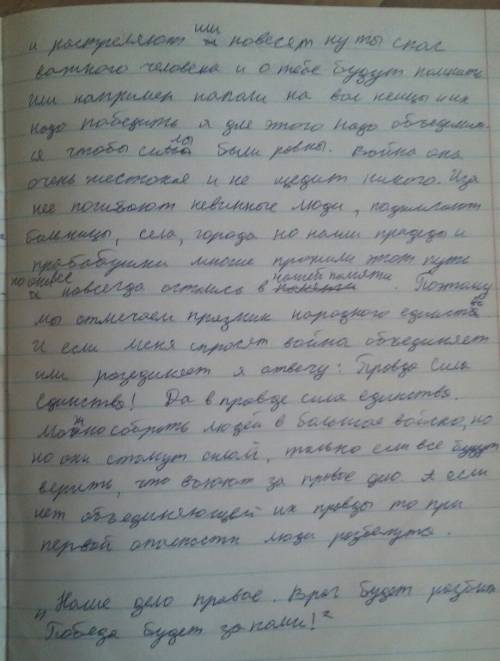 и растреляют или повесят ну ты спас
важного человека и о тебе будут помнить
Или например напали на вас немцы и их
надо победить я для этого надо объединит
ся чтобы силы были ровны. Война она
очень жестокая и не щедит никого. Из за
нее погибают невинные люди, поджигают
больницы, села, города но наши прадеды и
прабабушки многие прожили этот путь
навсегда остались в нашей памяти. Поэтому
мы отмечаем празник народного единства
И если меня спросят война объединяет
или разединяет я отвечу: Правда Сила
Единства! Да в правде сила единства.
Можно собрать людей в большое войско, но
но они станут силой, только если все будут
верить, что воюют за правое дело. А если
нет объединяющей их правды то при
первой опасности люди разбегутся.
„Наше дело правое. Враг будет разбит
Победа будет за нами!"